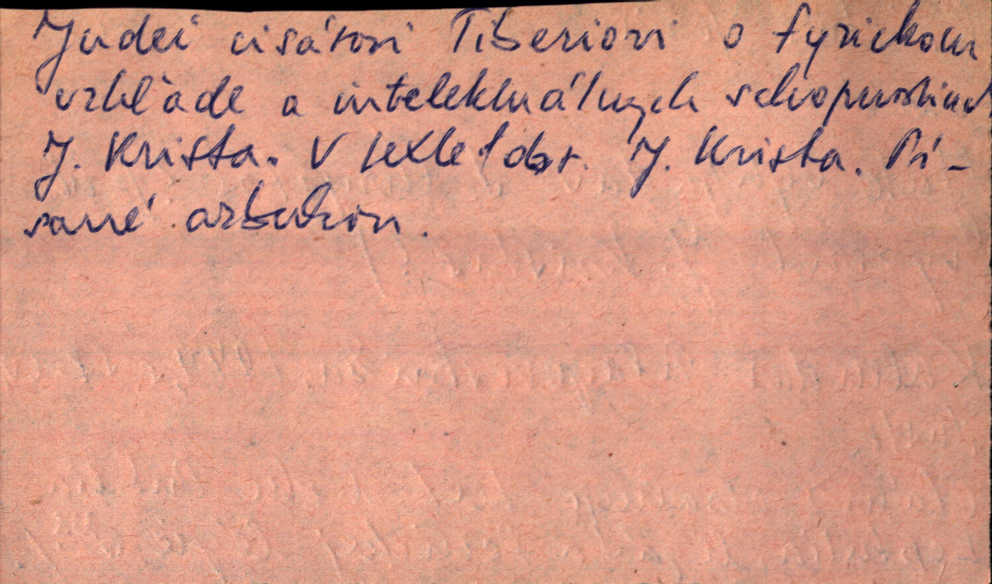 Judei cisárovi Tiberiovi o fyzickom
vzhľade a intelektuálnych schopnostiach
J. Krista. V texte 1 obr. J. Krista. Pí-
sané azbukou.